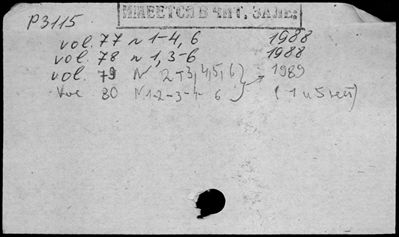 P3115
ИМЕЕТСЯ В ЧИТ. ЗАЛЕ.
vol. 77 n 1-4, 6 1988
vol. 78 n 1, 3-6 1988
vol. 79 N 2-3, 4, 5, 6 1989
vol 80 N 1-2-3-4 6 (1 и 5 нет)